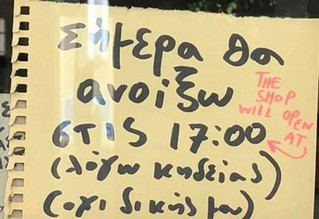 Σήμερα θα
ανοίξω
στις 17:00
(λόγω κηδείας)
(όχι δικής μου)
THE
SHOP
WILL OPEN
AT